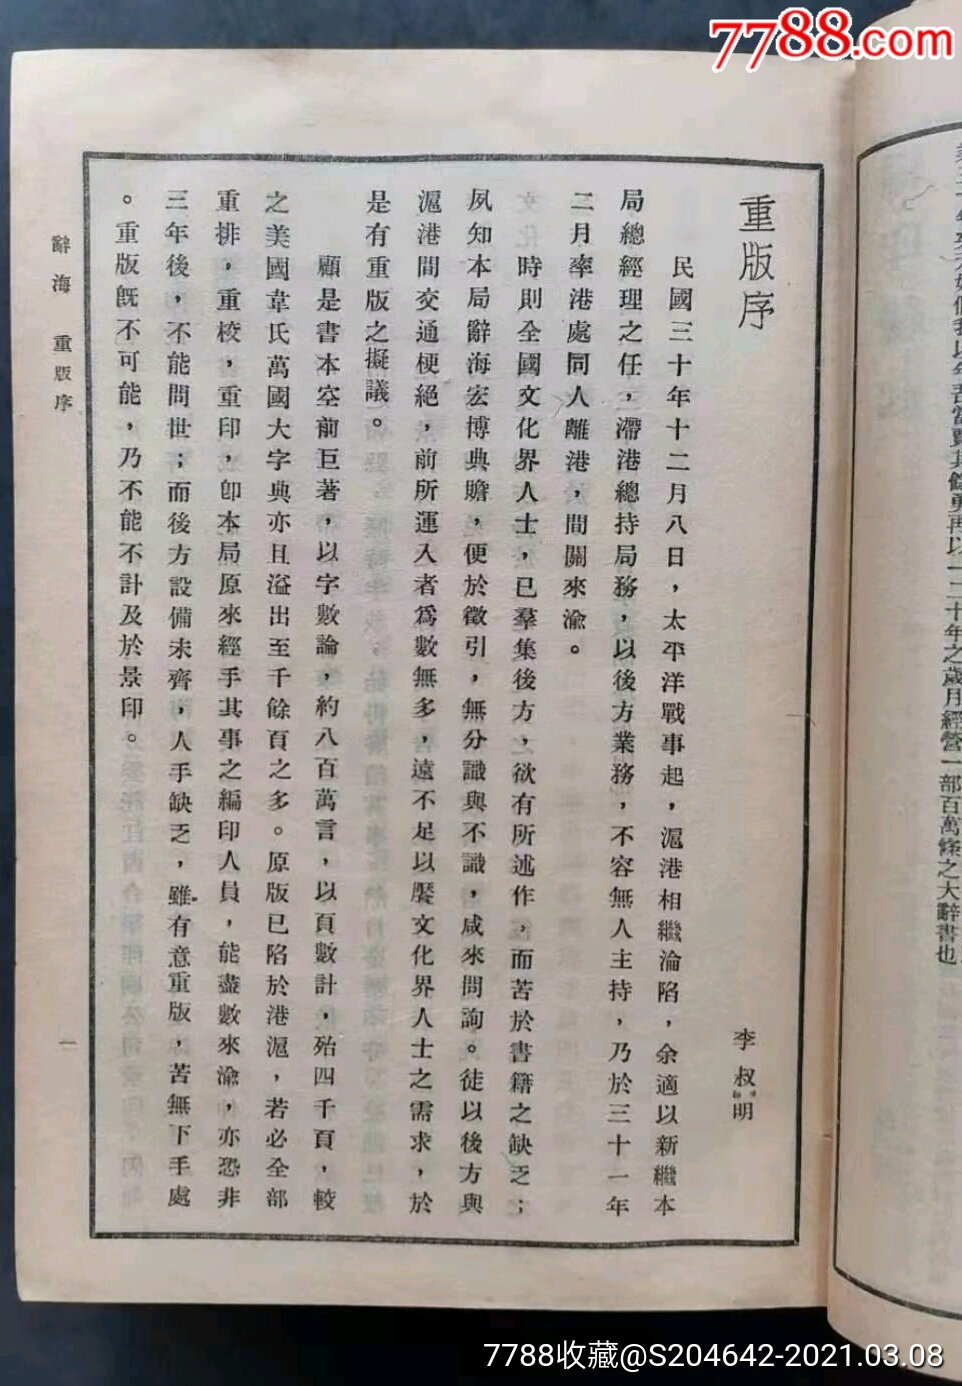 7788.com
重版序
李叔明
民國三十年十二月八日，太平洋戰事起，滬港相繼淪陷，余適以新繼本
局總經理之任，滯港總持局務，以後方業務，不容無人主持，乃於三十一年
二月率港處同人離港，間關來渝。
時則全國文化界人士，已羣集後方，欲有所述作，而苦於書籍之缺乏；
夙知本局辭海宏博典贍，便於徵引，無分識與不識，咸來問詢。徒以後方與
滬港間交通梗絕，前所運入者爲數無多，遠不足以饜文化界人士之需求，於
是有重版之擬議。
顧是書本空前巨著，以字數論，約八百萬言，以頁數計，殆四千頁，較
之美國韋氏萬國大字典亦且溢出至千餘頁之多。原版已陷於港滬，若必全部
重排，重校，重印，卽本局原來經手其事之編印人員，能盡數來渝，亦恐非
三年後，不能問世；而後方設備未齊，人手缺乏，雖有意重版，苦無下手處
。重版旣不可能，乃不能不計及於景印。
辭海 重版序
一
年之歲月經營一部百萬條之大辭書也
7788收藏@S204642-2021.03.08